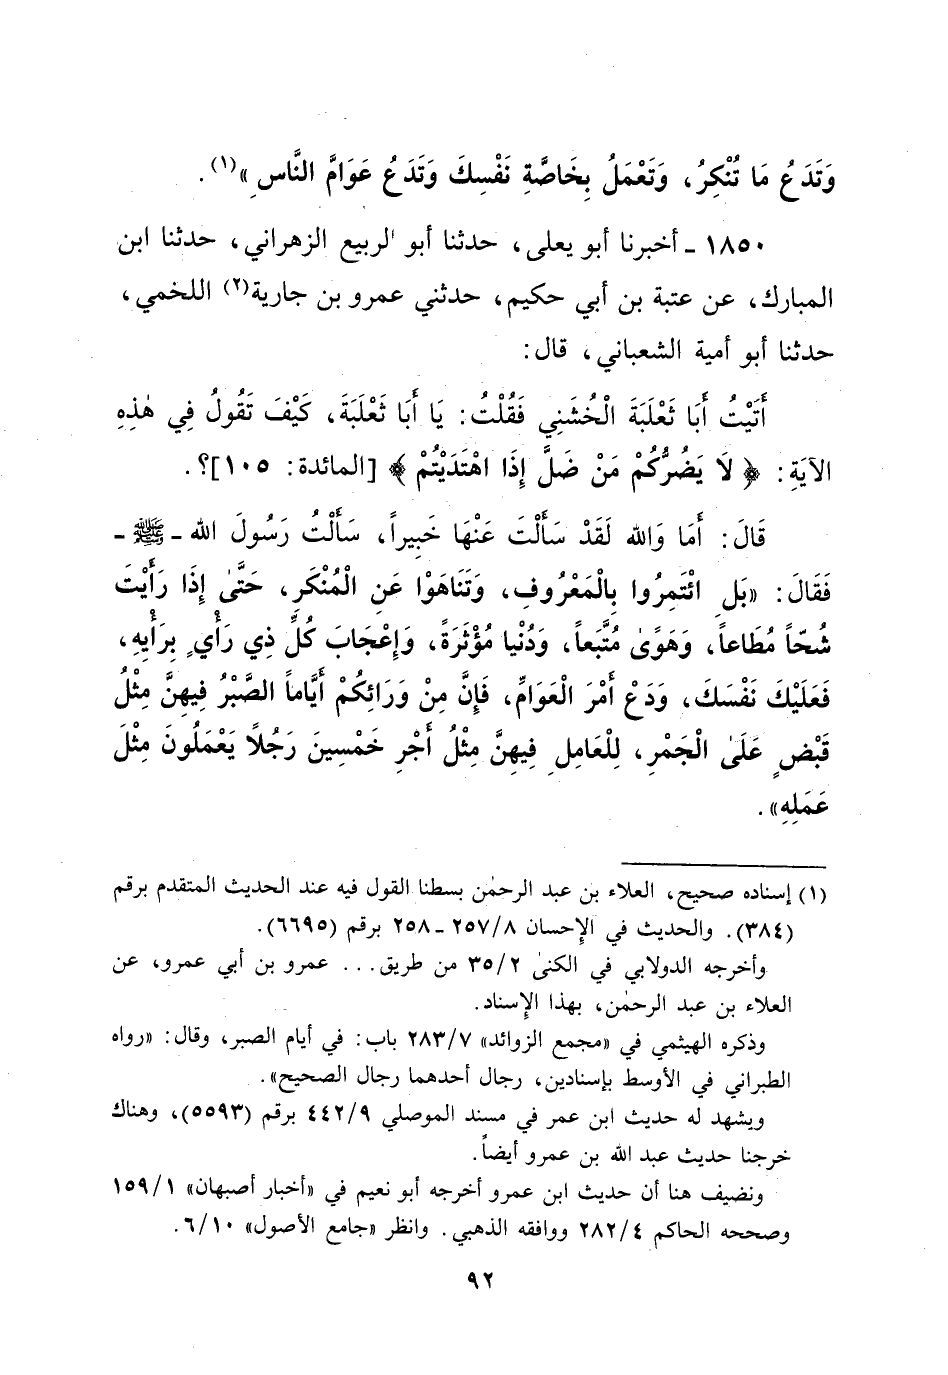 وَتَدَعُ مَا تُنْكِرُ، وَتَعْمَلُ بِخَاصَّةِ نَفْسِكَ وَتَدَعُ عَوَامَّ النَّاسِ»(١).
١٨٥٠ ـ أخبرنا أبو يعلى، حدثنا أبو الربيع الزهراني، حدثنا ابن
المبارك، عن عتبة بن أبي حكيم، حدثني عمرو بن جارية(٢) اللخمي،
حدثنا أبو أمية الشعباني، قال:
أَتَيْتُ أَبَا ثَعْلَبَةَ الْخُشَنِي فَقُلْتُ: يَا أَبَا ثَعْلَبَةَ، كَيْفَ تَقُولُ فِي هٰذِهِ
الآيَةِ: ﴿لَا يَضُرُّكُمْ مَنْ ضَلَّ إِذَا اهْتَدَيْتُمْ﴾ [المائدة: ١٠٥]؟.
قَالَ: أَمَا وَالله لَقَدْ سَأَلْتَ عَنْهَا خَبِيراً، سَأَلْتُ رَسُولَ الله ـ ﷺ ـ
فَقَالَ: «بَلِ ائْتَمِرُوا بِالْمَعْرُوفِ، وَتَنَاهَوْا عَنِ الْمُنْكَرِ، حَتَّىٰ إِذَا رَأَيْتَ
شُحّاً مُطَاعاً، وَهَوًىٰ مُتَّبَعاً، وَدُنْيا مُؤْثَرَةً، وَإِعْجَابَ كُلِّ ذِي رَأْيٍ بِرَأْيِهِ،
فَعَلَيْكَ نَفْسَكَ، وَدَعْ أَمْرَ الْعَوَامِّ، فَإِنَّ مِنْ وَرَائِكُمْ أَيَّاماً الصَّبْرُ فِيهِنَّ مِثْلُ
قَبْضٍ عَلَىٰ الْجَمْرِ، لِلْعَامِلِ فِيهِنَّ مِثْلُ أَجْرِ خَمْسِينَ رَجُلاً يَعْمَلُونَ مِثْلَ
عَمَلِهِ».
(١) إسناده صحيح، العلاء بن عبد الرحمٰن بسطنا القول فيه عند الحديث المتقدم برقم
(٣٨٤). والحديث في الإحسان ٢٥٧/٨ ـ ٢٥٨ برقم (٦٦٩٥).
وأخرجه الدولابي في الكنىٰ ٣٥/٢ من طريق... عمرو بن أبي عمرو، عن
العلاء بن عبد الرحمٰن، بهذا الإسناد.
وذكره الهيثمي في «مجمع الزوائد» ٢٨٣/٧ باب: في أيام الصبر، وقال: «رواه
الطبراني في الأوسط بإسنادين، رجال أحدهما رجال الصحيح».
ويشهد له حديث ابن عمر في مسند الموصلي ٤٤٢/٩ برقم (٥٥٩٣)، وهناك
خرجنا حديث عبد الله بن عمرو أيضاً.
ونضيف هنا أن حديث ابن عمرو أخرجه أبو نعيم في «أخبار أصبهان» ١٥٩/١
وصححه الحاكم ٢٨٢/٤ ووافقه الذهبي. وانظر «جامع الأصول» ٦/١٠.
٩٢